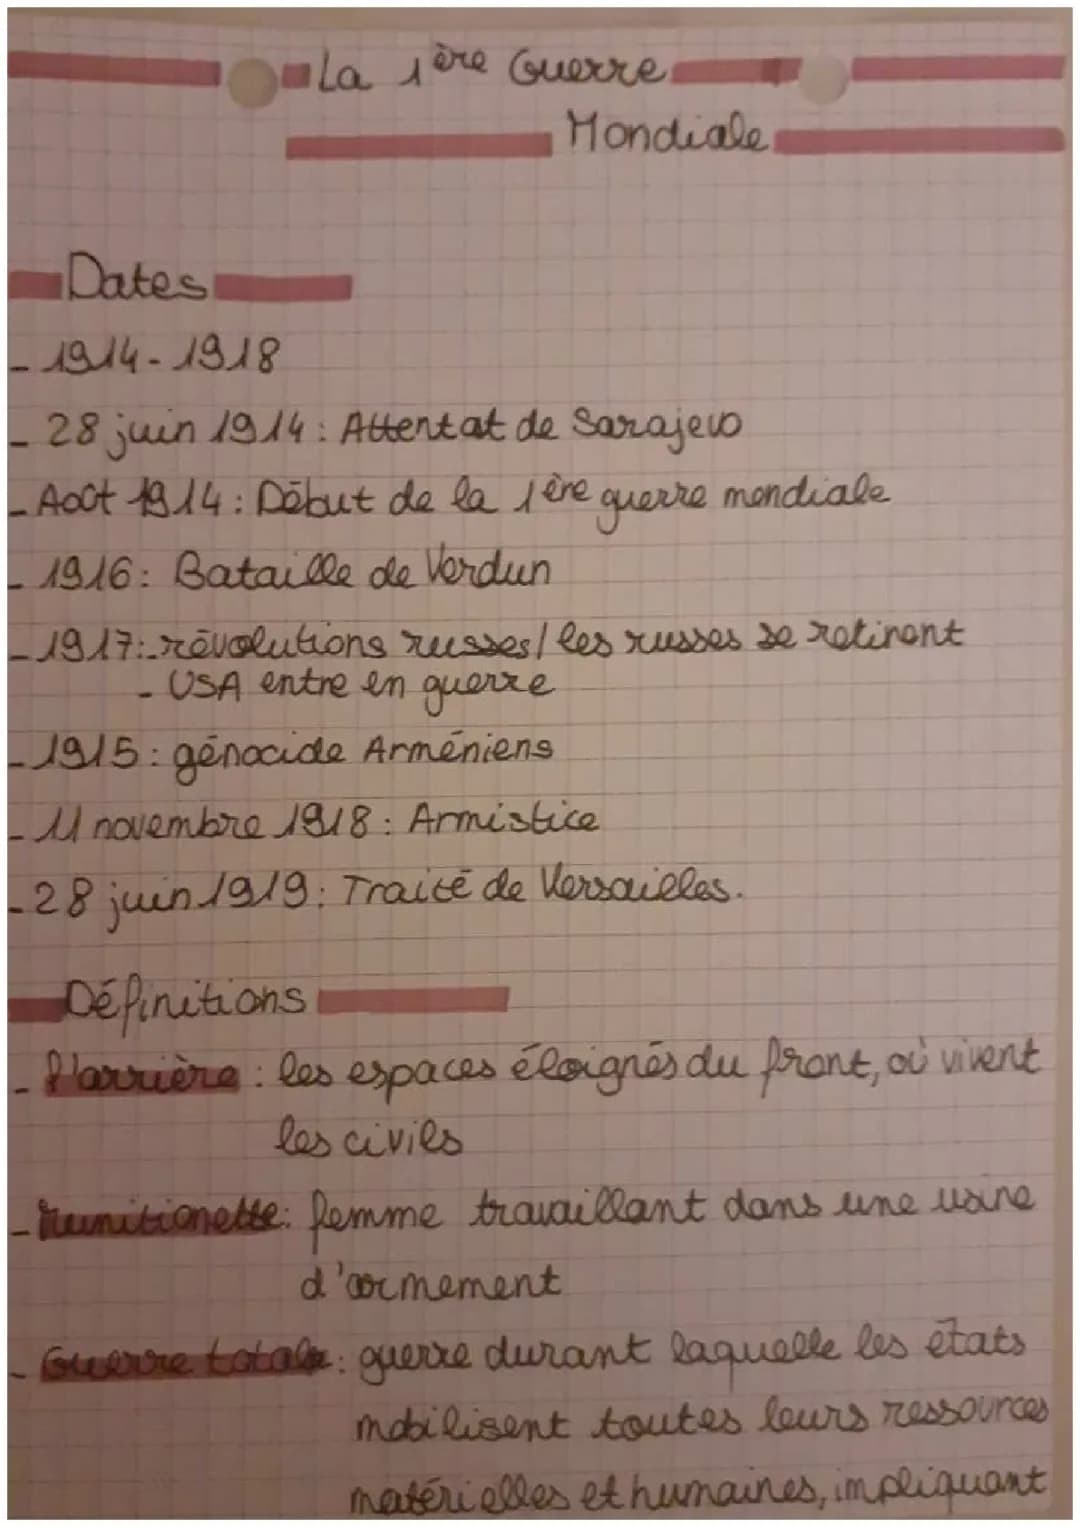 La 1ère Guerre
Mondiale
Dates
- 1914-1918
- 28 juin 1914 : Attentat de Sarajevo
- Août 1914 : Début de la 1ère guerre mondiale
- 1916 : Bataille de Verdun
- 1917 : - révolutions russes / les russes se retirent
- USA entre en guerre
- 1915 : génocide Arméniens
- 11 novembre 1918 : Armistice
- 28 juin 1919 : Traité de Versailles.
Définitions
- l'arrière : les espaces éloignés du front, où vivent
les civils
- munitionette : femme travaillant dans une usine
d'armement
- Guerre totale : guerre durant laquelle les états
mobilisent toutes leurs ressources
matérielles et humaines, impliquant